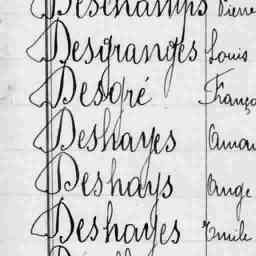 Deschamps Pierre
Desgranges Louis
Desgré
Deshayes
Deshays Ange
Deshayes Emile